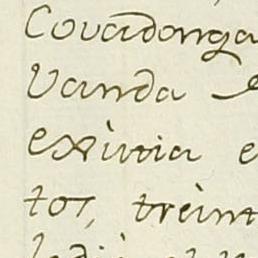 Covadonga
Vanda
existia e
tos, treint